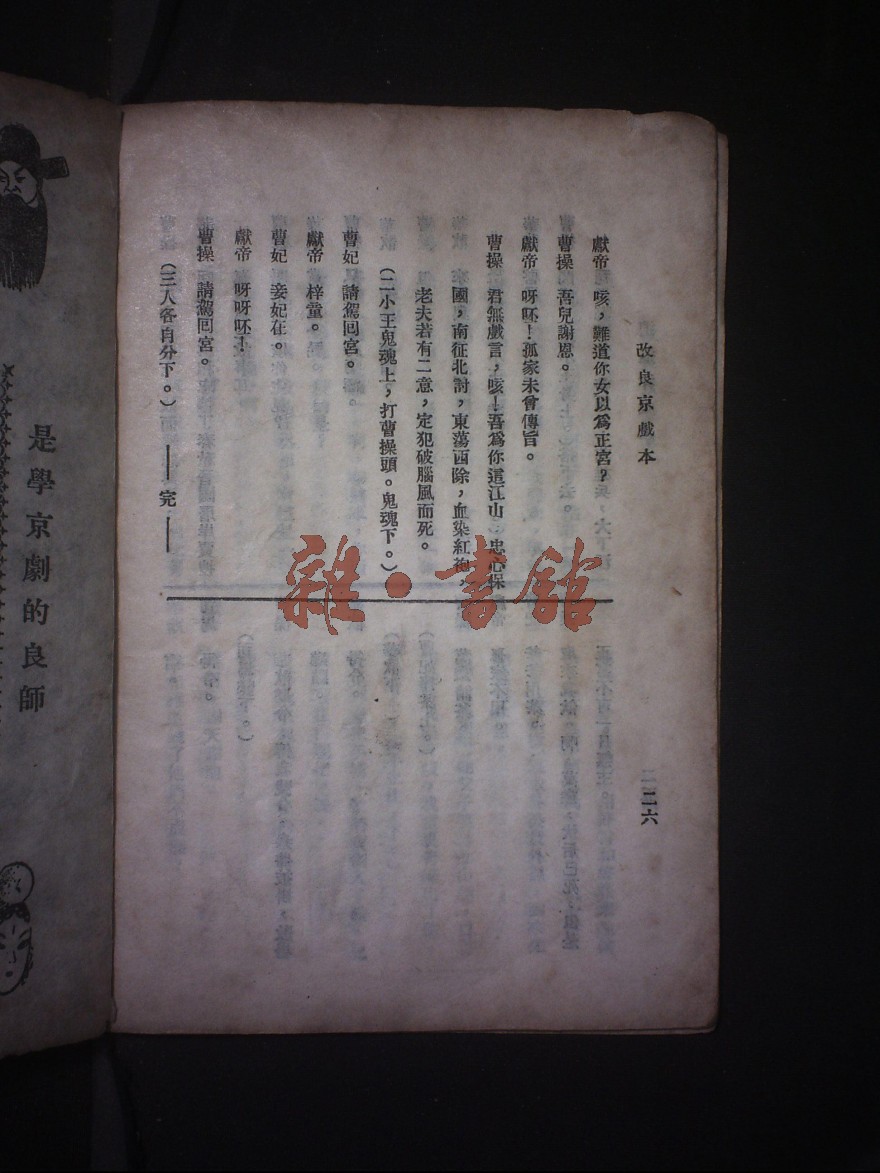 改良京戲本
二二六
獻帝 咳，難道你女以爲正宮？
曹操 吾兒謝恩。
獻帝 呀呸！孤家未曾傳旨。
曹操 君無戲言，咳！吾爲你這江山，忠心保
國，南征北討，東蕩西除，血染紅袍，
老夫若有二意，定犯破腦風而死。
（二小王鬼魂上，打曹操頭。鬼魂下。）
曹妃 請駕回宮。
獻帝 梓童。
曹妃 妾妃在。
獻帝 呀呀呸！
曹操 請駕回宮。
（三人各自分下。）——完——
是學京劇的良師
雜·書館